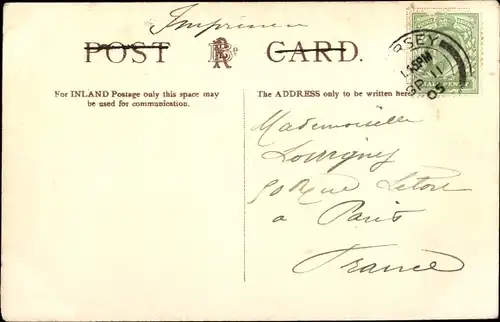 Imprimés
POST CARD.
For INLAND Postage only this space may
be used for communication.
The ADDRESS only to be written here
JERSEY
SP 11
05
Mademoiselle
Lourigny
90 Rue
à Paris
France